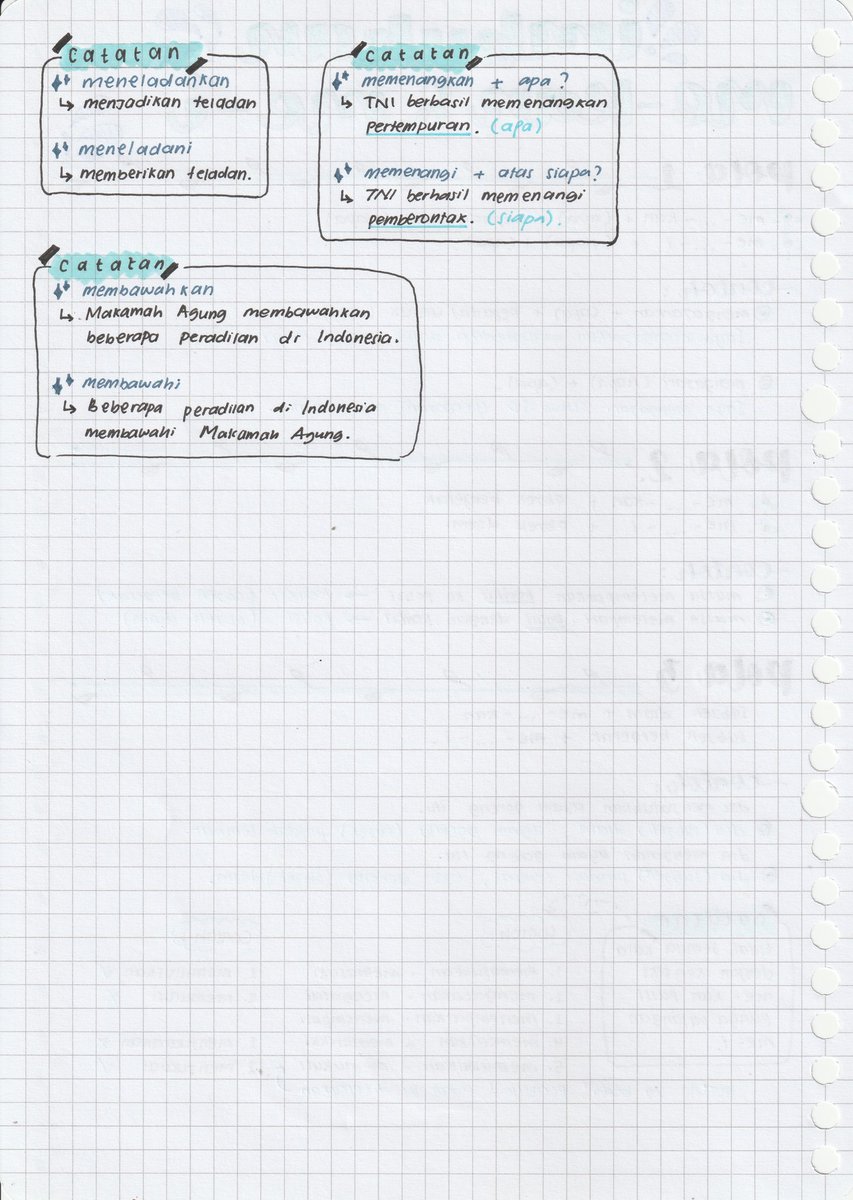 catatan
meneladankan
↳ menjadikan teladan
meneladani
↳ memberikan teladan.
catatan
memenangkan + apa?
↳ TNI berhasil memenangkan
pertempuran. (apa)
memenangi + atas siapa?
↳ TNI berhasil memenangi
pemberontak. (siapa).
catatan
membawahkan
↳ Makamah Agung membawahkan
beberapa peradilan di Indonesia.
membawahi
↳ Beberapa peradilan di Indonesia
membawahi Makamah Agung.